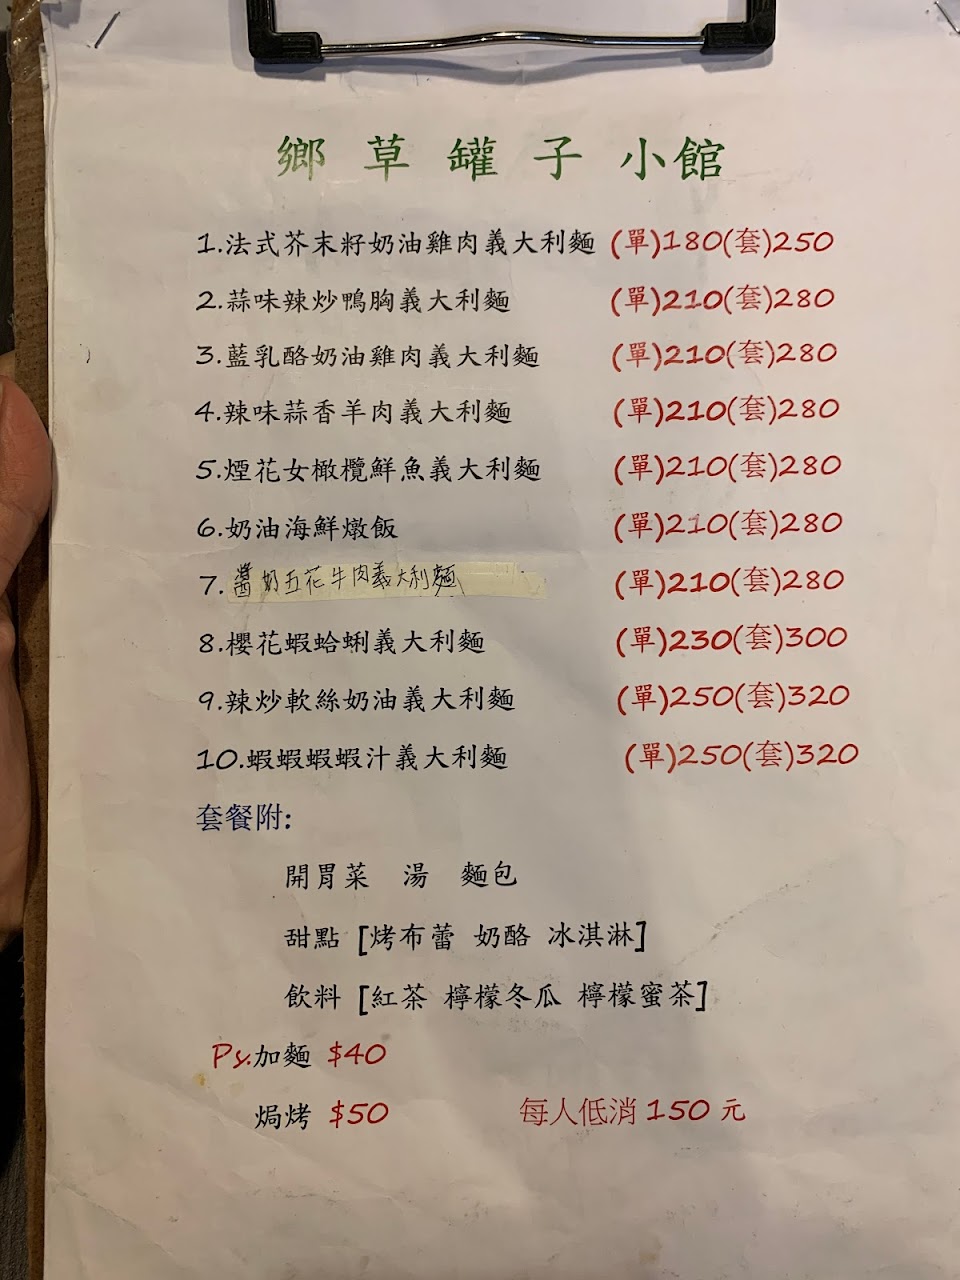 鄉草罐子小館
1.法式芥末籽奶油雞肉義大利麵 (單)180(套)250
2.蒜味辣炒鴨胸義大利麵 (單)210(套)280
3.藍乳酪奶油雞肉義大利麵 (單)210(套)280
4.辣味蒜香羊肉義大利麵 (單)210(套)280
5.煙花女橄欖鮮魚義大利麵 (單)210(套)280
6.奶油海鮮燉飯 (單)210(套)280
7.醬奶五花牛肉義大利麵 (單)210(套)280
8.櫻花蝦蛤蜊義大利麵 (單)230(套)300
9.辣炒軟絲奶油義大利麵 (單)250(套)320
10.蝦蝦蝦蝦汁義大利麵 (單)250(套)320
套餐附:
開胃菜 湯 麵包
甜點 [烤布蕾 奶酪 冰淇淋]
飲料 [紅茶 檸檬冬瓜 檸檬蜜茶]
Ps.加麵 $40
焗烤 $50 每人低消 150 元